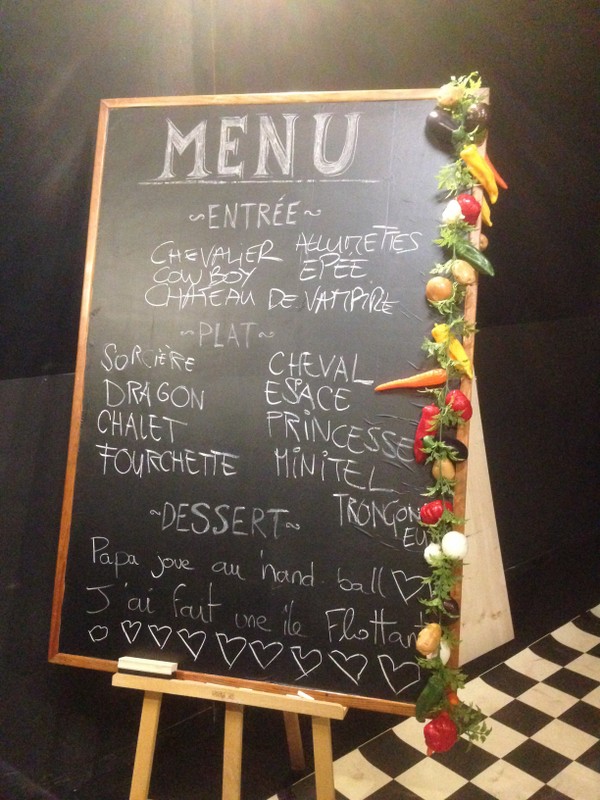 MENU
~ENTRÉE~
CHEVALIER ALLUMETTES
COW BOY ÉPÉE
CHATEAU DE VAMPIRE
~PLAT~
SORCIÈRE CHEVAL
DRAGON ESACE
CHALET PRINCESSE
FOURCHETTE MINITEL
TRONÇON
EU
~DESSERT~
Papa joue au hand ball
J'ai fait une île Flottan